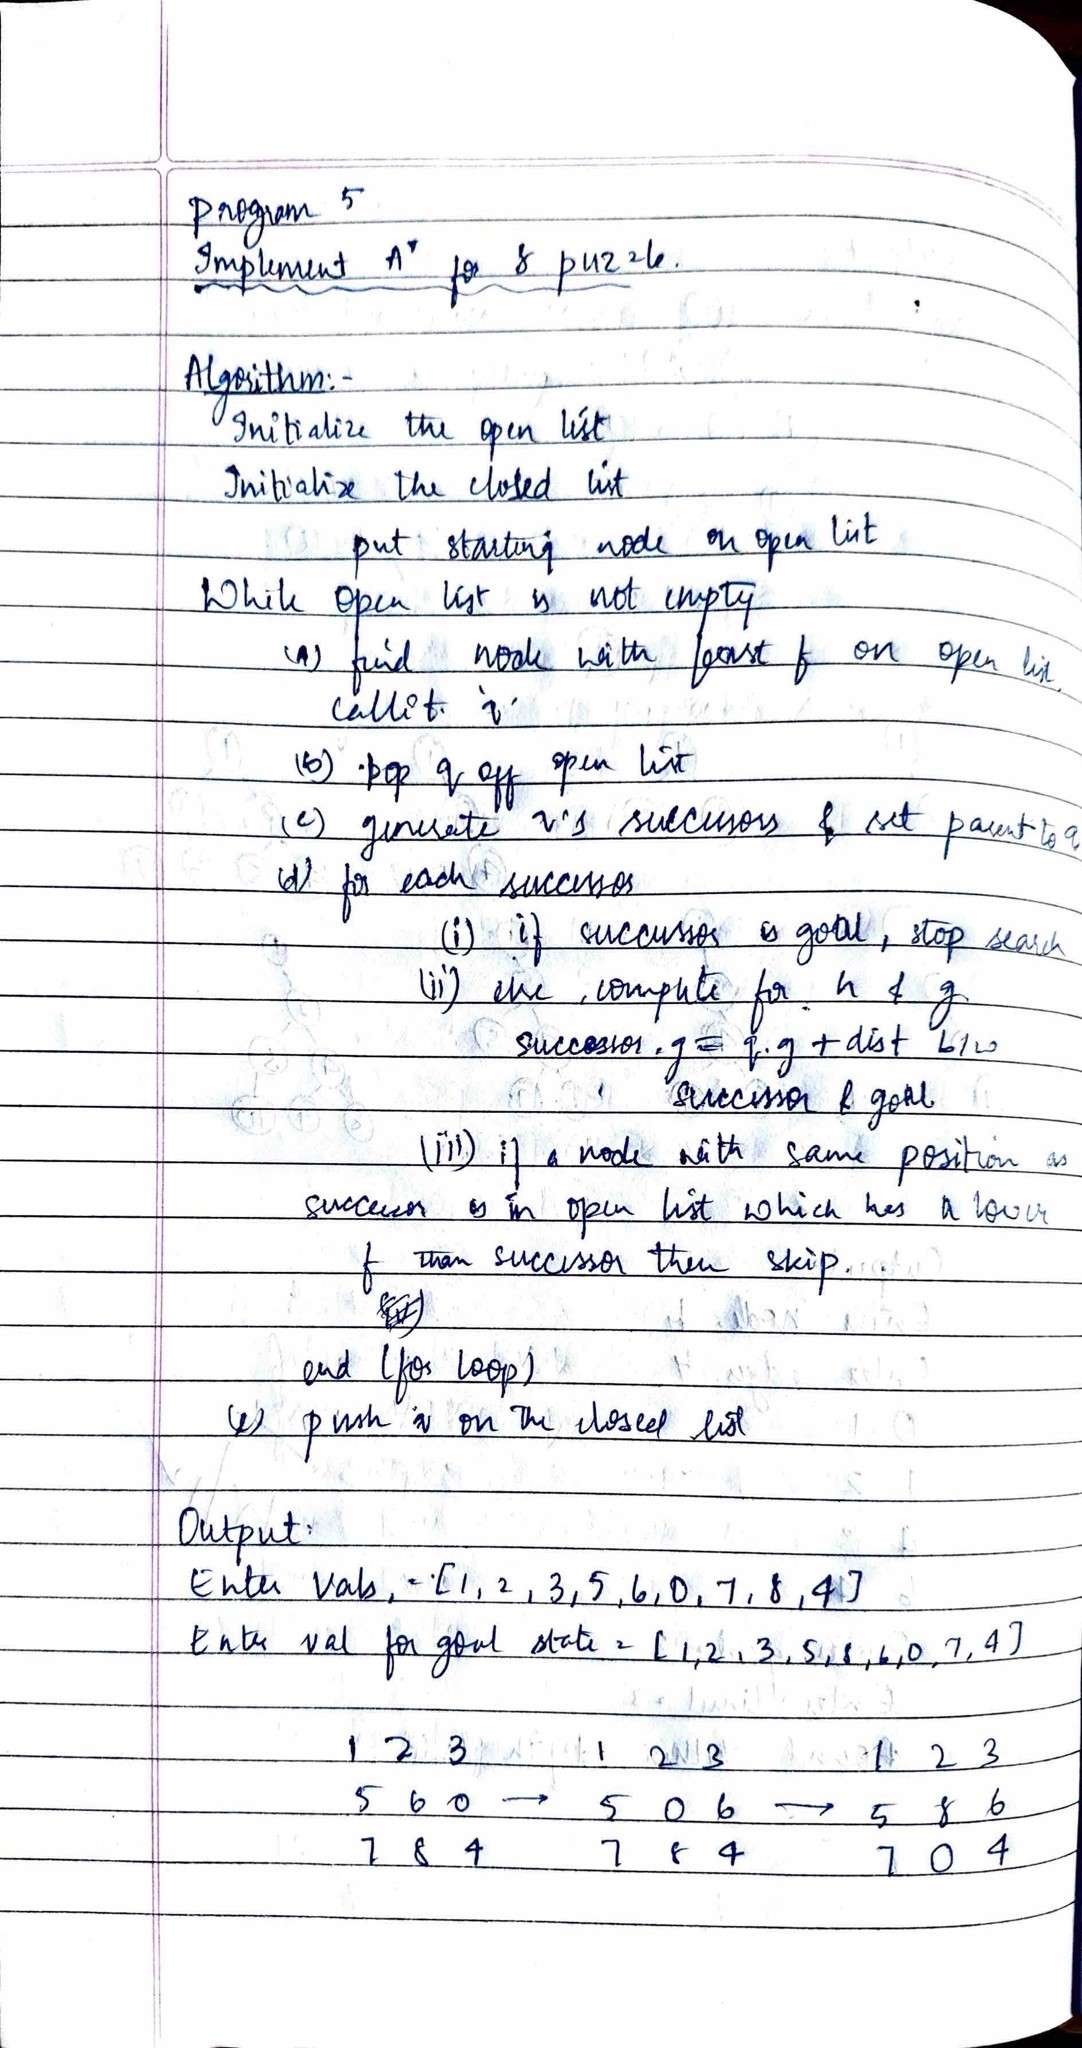 Program 5
Implement A* for 8 puzzle.
Algorithm:-
Initialize the open list
Initialize the closed list
put starting node on open list
While open list is not empty
(a) find node with least f on open list.
call it 'q'
(b) pop q off open list
(c) generate q's successors & set parent to q
(d) for each successor
(i) if successor is goal, stop search
(ii) else, compute for h & g
successor.g = q.g + dist b/w
successor & goal
(iii) if a node with same position as
successor is in open list which has a lower
f than successor then skip.
end (for loop)
(e) push q on the closed list
Output:
Enter Vals, = [1, 2, 3, 5, 6, 0, 7, 8, 4]
Enter val for goal state = [1, 2, 3, 5, 8, 6, 0, 7, 4]
1 2 3 1 2 3 1 2 3
5 6 0 → 5 0 6 → 5 8 6
7 8 4 7 8 4 7 0 4